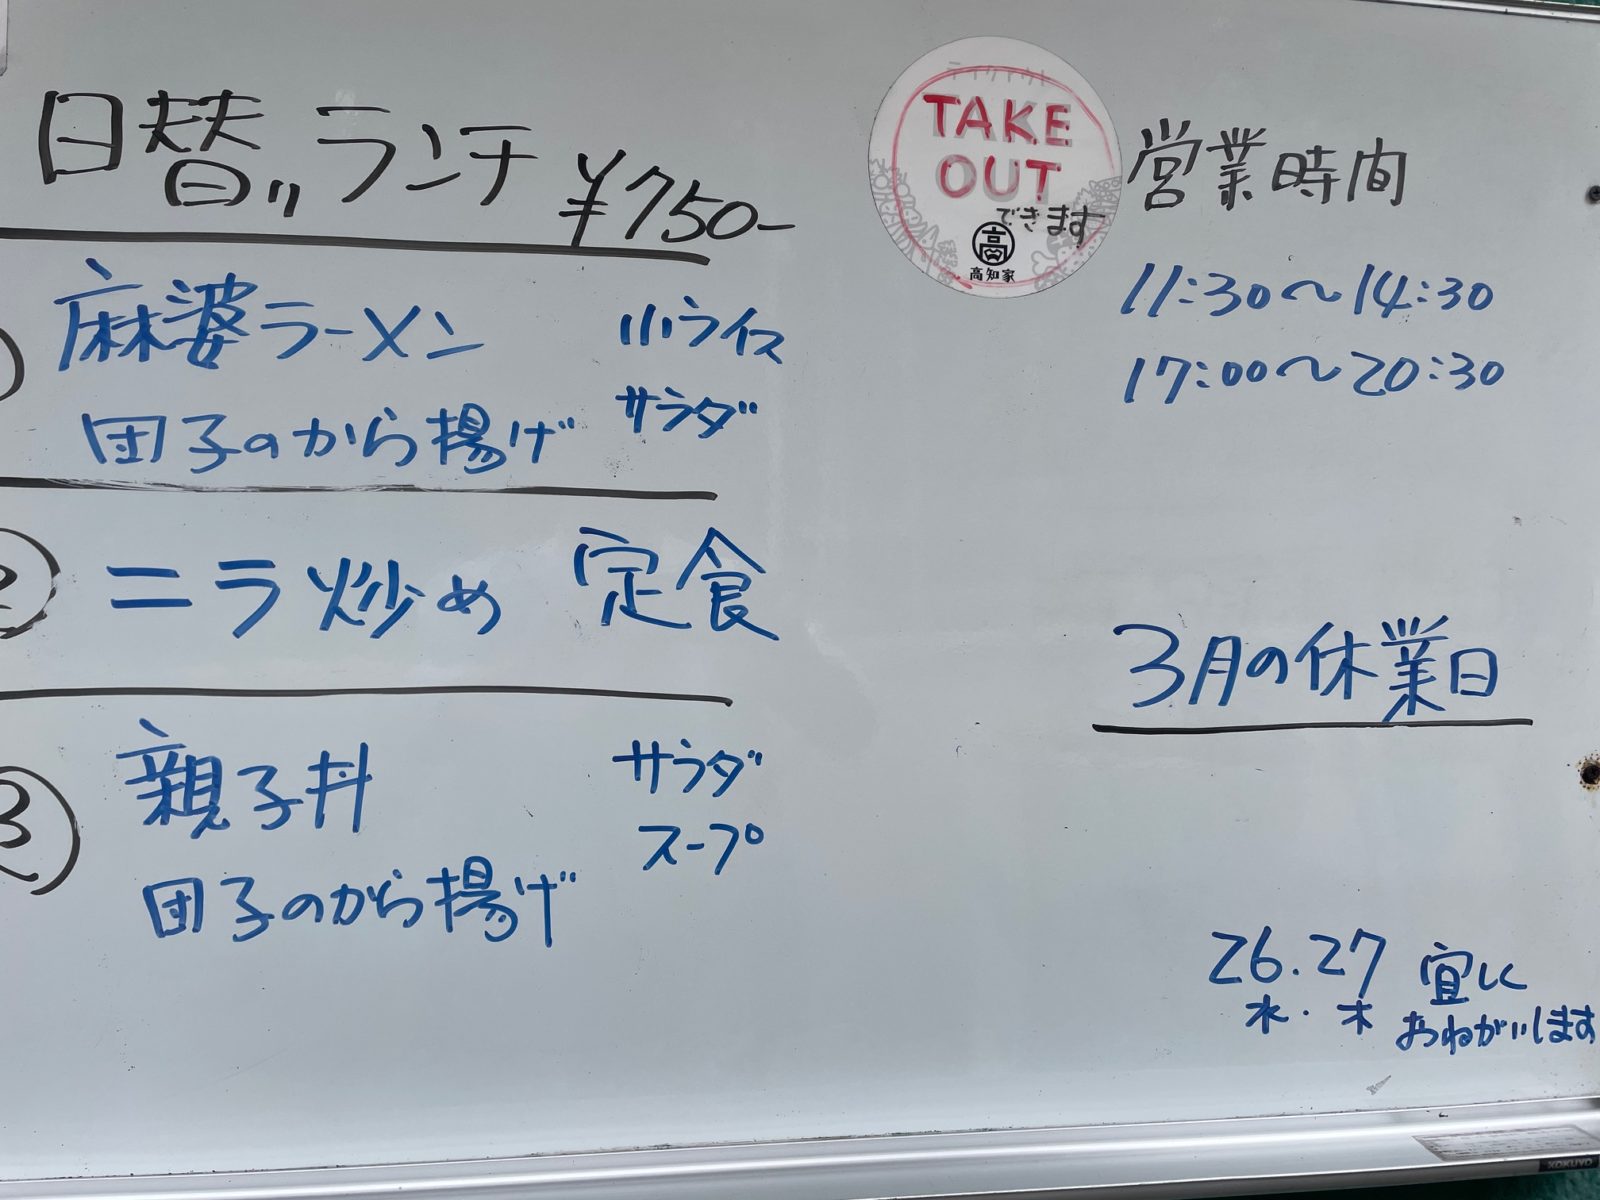 日替りランチ ¥750-
麻婆ラーメン 小ライス
団子のから揚げ サラダ
② ニラ炒め 定食
③ 親子丼 サラダ
スープ
団子のから揚げ
テイクアウト
TAKE
OUT
できます
高
高知家
営業時間
11:30～14:30
17:00～20:30
3月の休業日
26.27
水.木
宜しく
おねがいします
KOKUYO